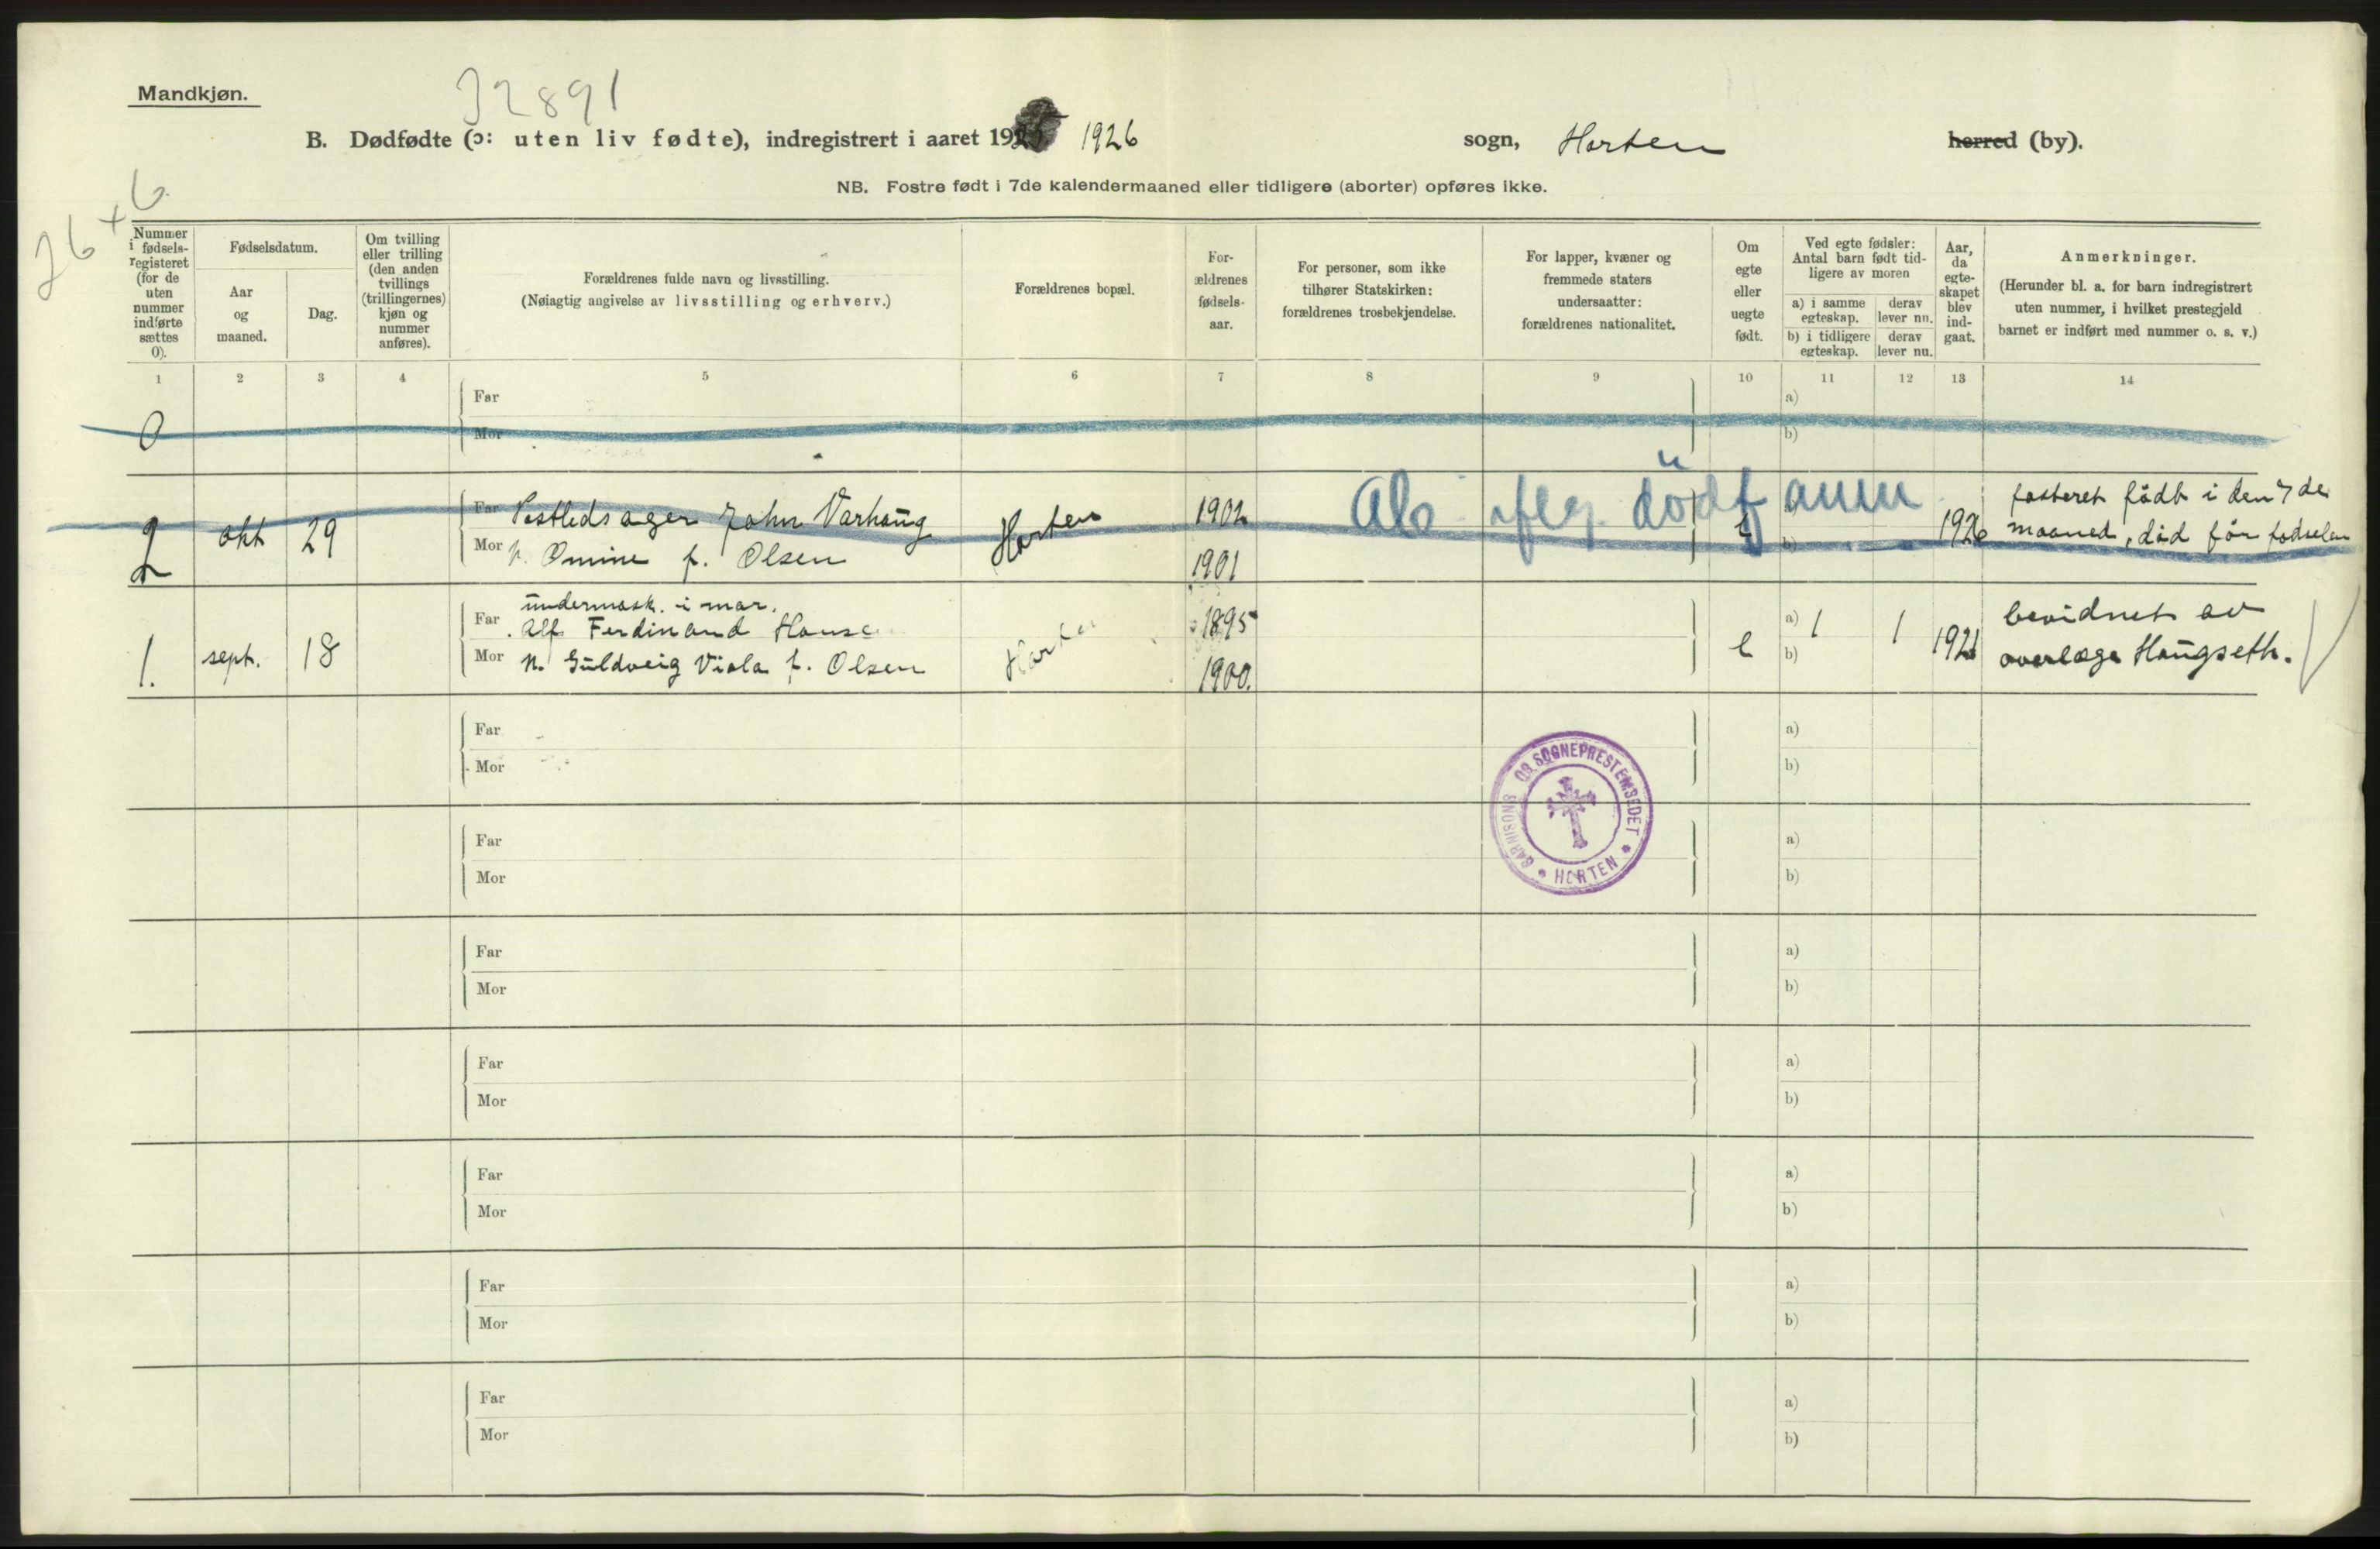 Mandkjøn.
J2891
B. Dødfødte (ɔ: uten liv fødte), indregistrert i aaret 192 1926 sogn, Horten herred (by).
NB. Fostre født i 7de kalendermaaned eller tidligere (aborter) opføres ikke.
26 + 6
Nummer i fødselsregisteret (for de uten nummer indførte sættes 0).
Fødselsdatum.
Aar og maaned.
Dag.
Om tvilling eller trilling (den anden tvillings (trillingernes) kjøn og nummer anføres).
Forældrenes fulde navn og livsstilling.
(Nøiagtig angivelse av livsstilling og erhverv.)
Forældrenes bopæl.
Forældrenes fødselsaar.
For personer, som ikke tilhører Statskirken: forældrenes trosbekjendelse.
For lapper, kvæner og fremmede staters undersaatter: forældrenes nationalitet.
Om egte eller uegte født.
Ved egte fødsler: Antal barn født tidligere av moren
a) i samme egteskap.
derav lever nu.
b) i tidligere egteskap.
derav lever nu.
Aar, da egteskapet blev indgaat.
Anmerkninger.
(Herunder bl. a. for barn indregistrert
uten nummer, i hvilket prestegjeld
barnet er indført med nummer o. s. v.)
1 2 3 4 5 6 7 8 9 10 11 12 13 14
Far a)
0
Mor b)
Far John Varhaug 1902 fosteret født i den 7de
2 okt 29 Horten 1926 maaned, død før fødselen
Mor Omine f. Olsen 1901 b)
undermask. i mar.
Far Alf Ferdinand Hanse 1895 a) 1 1 bevidnet av
1. sept. 18 Horten e 1921 overlæge Haugseth.
Mor h. Guldveig Viola f. Olsen 1900. b)
Far a)
Mor b)
GARNISONS OG SOGNEPRESTEMBEDET
HORTEN
Far a)
Mor b)
Far a)
Mor b)
Far a)
Mor b)
Far a)
Mor b)
Far a)
Mor b)
Far a)
Mor b)